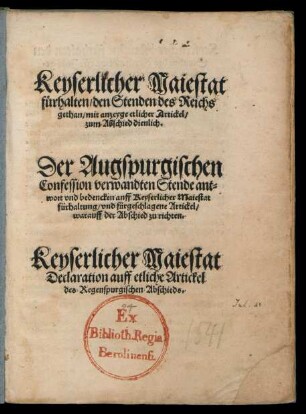 Keyserlicher Maiestat
fürhalten/ den Stenden des Reichs
gethan/ mit anzeyge etlicher Artickel/
zum Abschied dienlich.
Der Augspurgischen
Confession verwandten Stende ant-
wort vnd bedencken auff Keyserlicher Maiestat
fürhaltung/ vnd fürgeschlagene Artickel/
warauff der Abschied zu richten.
Keyserlicher Maiestat
Declaration auff etliche Artickel
des Regenspurgischen Abschieds.
Ex
Biblioth. Regia
Berolinensi.
1541